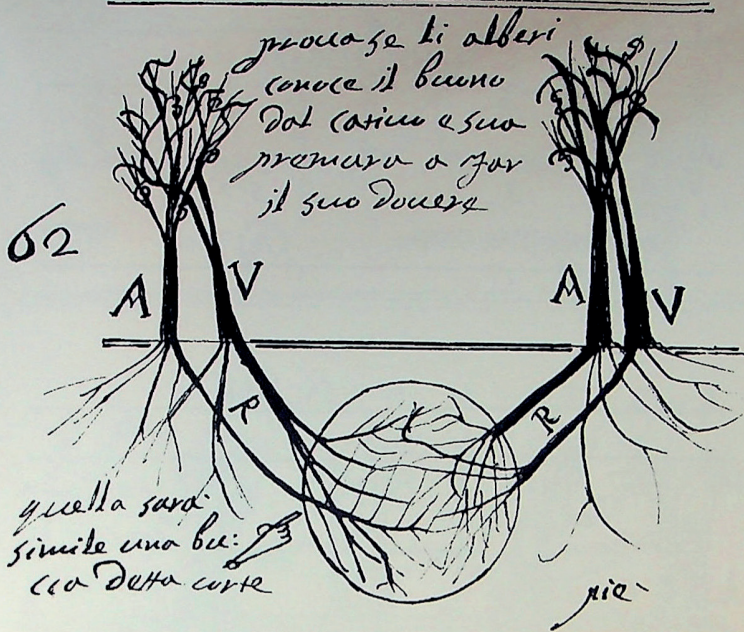 proua se li alberi
conoce il buono
dal catiuo e sua
premura a far
il suo douere
62
A V
A V
R
R
quella sara
simile una bu:
cca detta corte
piè